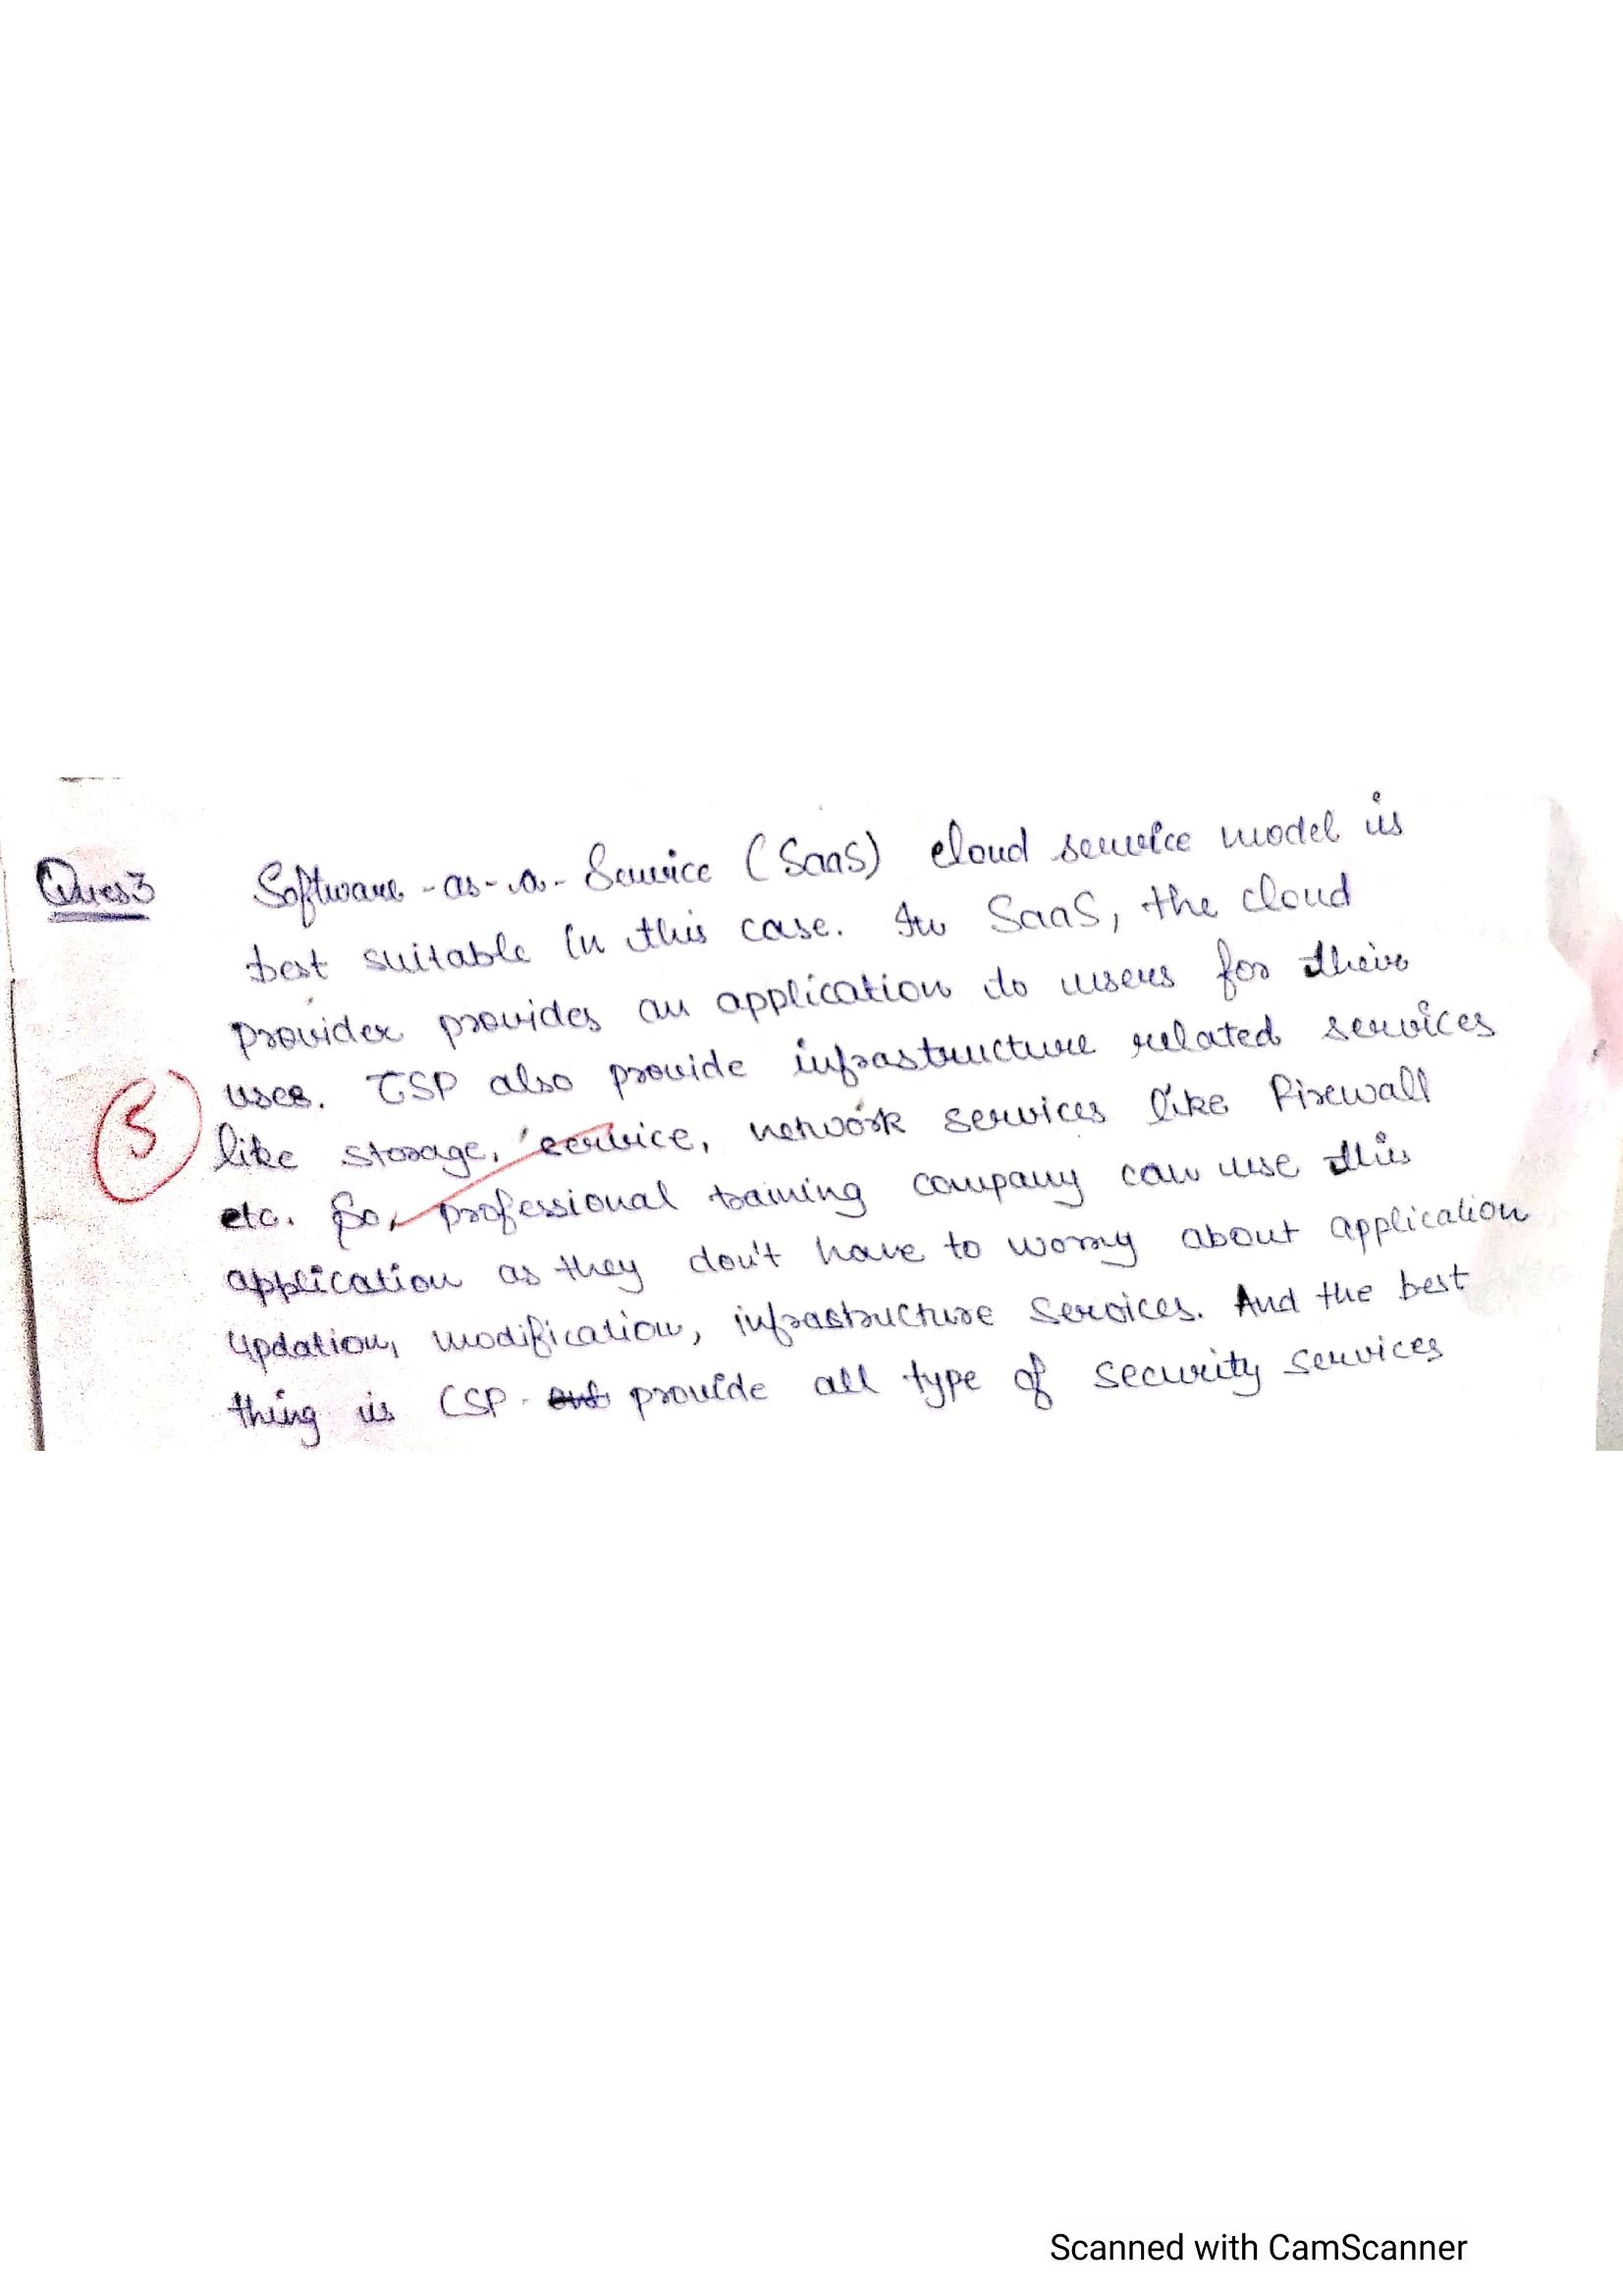 Ques3 Software-as-a-Service (SaaS) cloud service model is
best suitable in this case. In SaaS, the cloud
provider provides an application to users for their
uses. CSP also provide infrastructure related services
5
like storage, service, network services like Firewall
etc. So, professional training company can use this
application as they don't have to worry about application
updation, modification, infrastructure services. And the best
thing is CSP provide all type of security services
Scanned with CamScanner